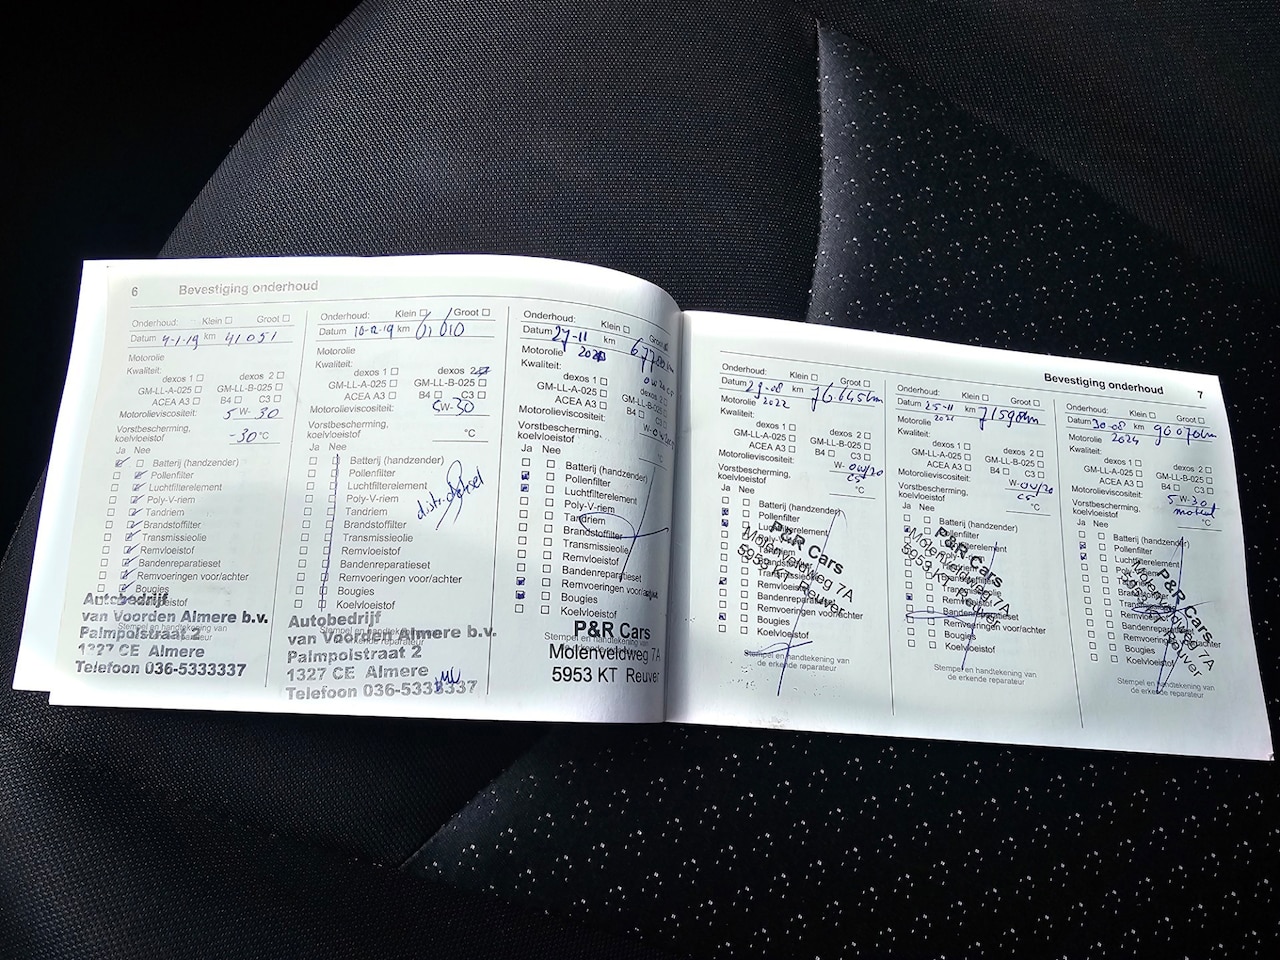 6 Bevestiging onderhoud
Onderhoud: Klein Groot
Datum 9-1-19 km 41051
Motorolie
Kwaliteit:
dexos 1 dexos 2
GM-LL-A-025 GM-LL-B-025
ACEA A3 B4 C3
Motorolieviscositeit: 5 W- 30
Vorstbescherming,
koelvloeistof -30 °C
Ja Nee
Batterij (handzender)
Pollenfilter
Luchtfilterelement
Poly-V-riem
Tandriem
Brandstoffilter
Transmissieolie
Remvloeistof
Bandenreparatieset
Remvoeringen voor/achter
Bougies
Autobedrijf
van Voorden Almere b.v.
Palmpolstraat 2
1327 CE Almere
Telefoon 036-5333337
Onderhoud: Klein Groot
Datum 10-12-19 km 61010
Motorolie
Kwaliteit:
dexos 1 dexos 2
GM-LL-A-025 GM-LL-B-025
ACEA A3 B4 C3
Motorolieviscositeit: 5W-30
Vorstbescherming,
koelvloeistof °C
Ja Nee
Batterij (handzender)
Pollenfilter
Luchtfilterelement
Poly-V-riem
Tandriem
Brandstoffilter
Transmissieolie
Remvloeistof
Bandenreparatieset
Remvoeringen voor/achter
Bougies
Koelvloeistof
Autobedrijf
van Voorden Almere b.v.
Palmpolstraat 2
1327 CE Almere
Telefoon 036-5333337
Onderhoud: Klein Groot
Datum 27-11 km
Motorolie
Kwaliteit:
dexos 1 dexos 2
GM-LL-A-025 GM-LL-B-025
ACEA A3 B4 C3
Motorolieviscositeit:
Vorstbescherming,
koelvloeistof °C
Ja Nee
Batterij (handzender)
Pollenfilter
Luchtfilterelement
Poly-V-riem
Tandriem
Brandstoffilter
Transmissieolie
Remvloeistof
Bandenreparatieset
Remvoeringen voor/achter
Bougies
Koelvloeistof
P&R Cars
Molenveldweg 7A
5953 KT Reuver
Bevestiging onderhoud 7
Onderhoud: Klein Groot
Datum 29-08 km 76.645km
Motorolie 2022
Kwaliteit:
dexos 1 dexos 2
GM-LL-A-025 GM-LL-B-025
ACEA A3 B4 C3
Motorolieviscositeit: W- 0W/20
C5
Vorstbescherming,
koelvloeistof °C
Ja Nee
Batterij (handzender)
Pollenfilter
Luchtfilterelement
Transmissieolie
Remvloeistof
Bandenreparatieset
Remvoeringen voor/achter
Bougies
Koelvloeistof
P&R Cars
Molenveldweg 7A
5953 KT Reuver
Stempel en handtekening van
de erkende reparateur
Onderhoud: Klein Groot
Datum 25-11 km
Motorolie
Kwaliteit:
dexos 1 dexos 2
GM-LL-A-025 GM-LL-B-025
ACEA A3 B4 C3
Motorolieviscositeit: W- 0W/20
C5
Vorstbescherming,
koelvloeistof °C
Ja Nee
Batterij (handzender)
Remvoeringen voor/achter
Bougies
Koelvloeistof
P&R Cars
Molenveldweg 7A
5953 KT Reuver
Stempel en handtekening van
de erkende reparateur
Onderhoud: Klein Groot
Datum 30-08 km 90070km
Motorolie 2024
Kwaliteit:
dexos 1 dexos 2
GM-LL-A-025 GM-LL-B-025
ACEA A3 B4 C3
Motorolieviscositeit: 5 W-30
Vorstbescherming,
koelvloeistof °C
Ja Nee
Batterij (handzender)
Pollenfilter
Luchtfilterelement
Bandenreparatieset
Remvoeringen voor/achter
Bougies
Koelvloeistof
P&R Cars
Molenveldweg 7A
5953 KT Reuver
Stempel en handtekening van
de erkende reparateur